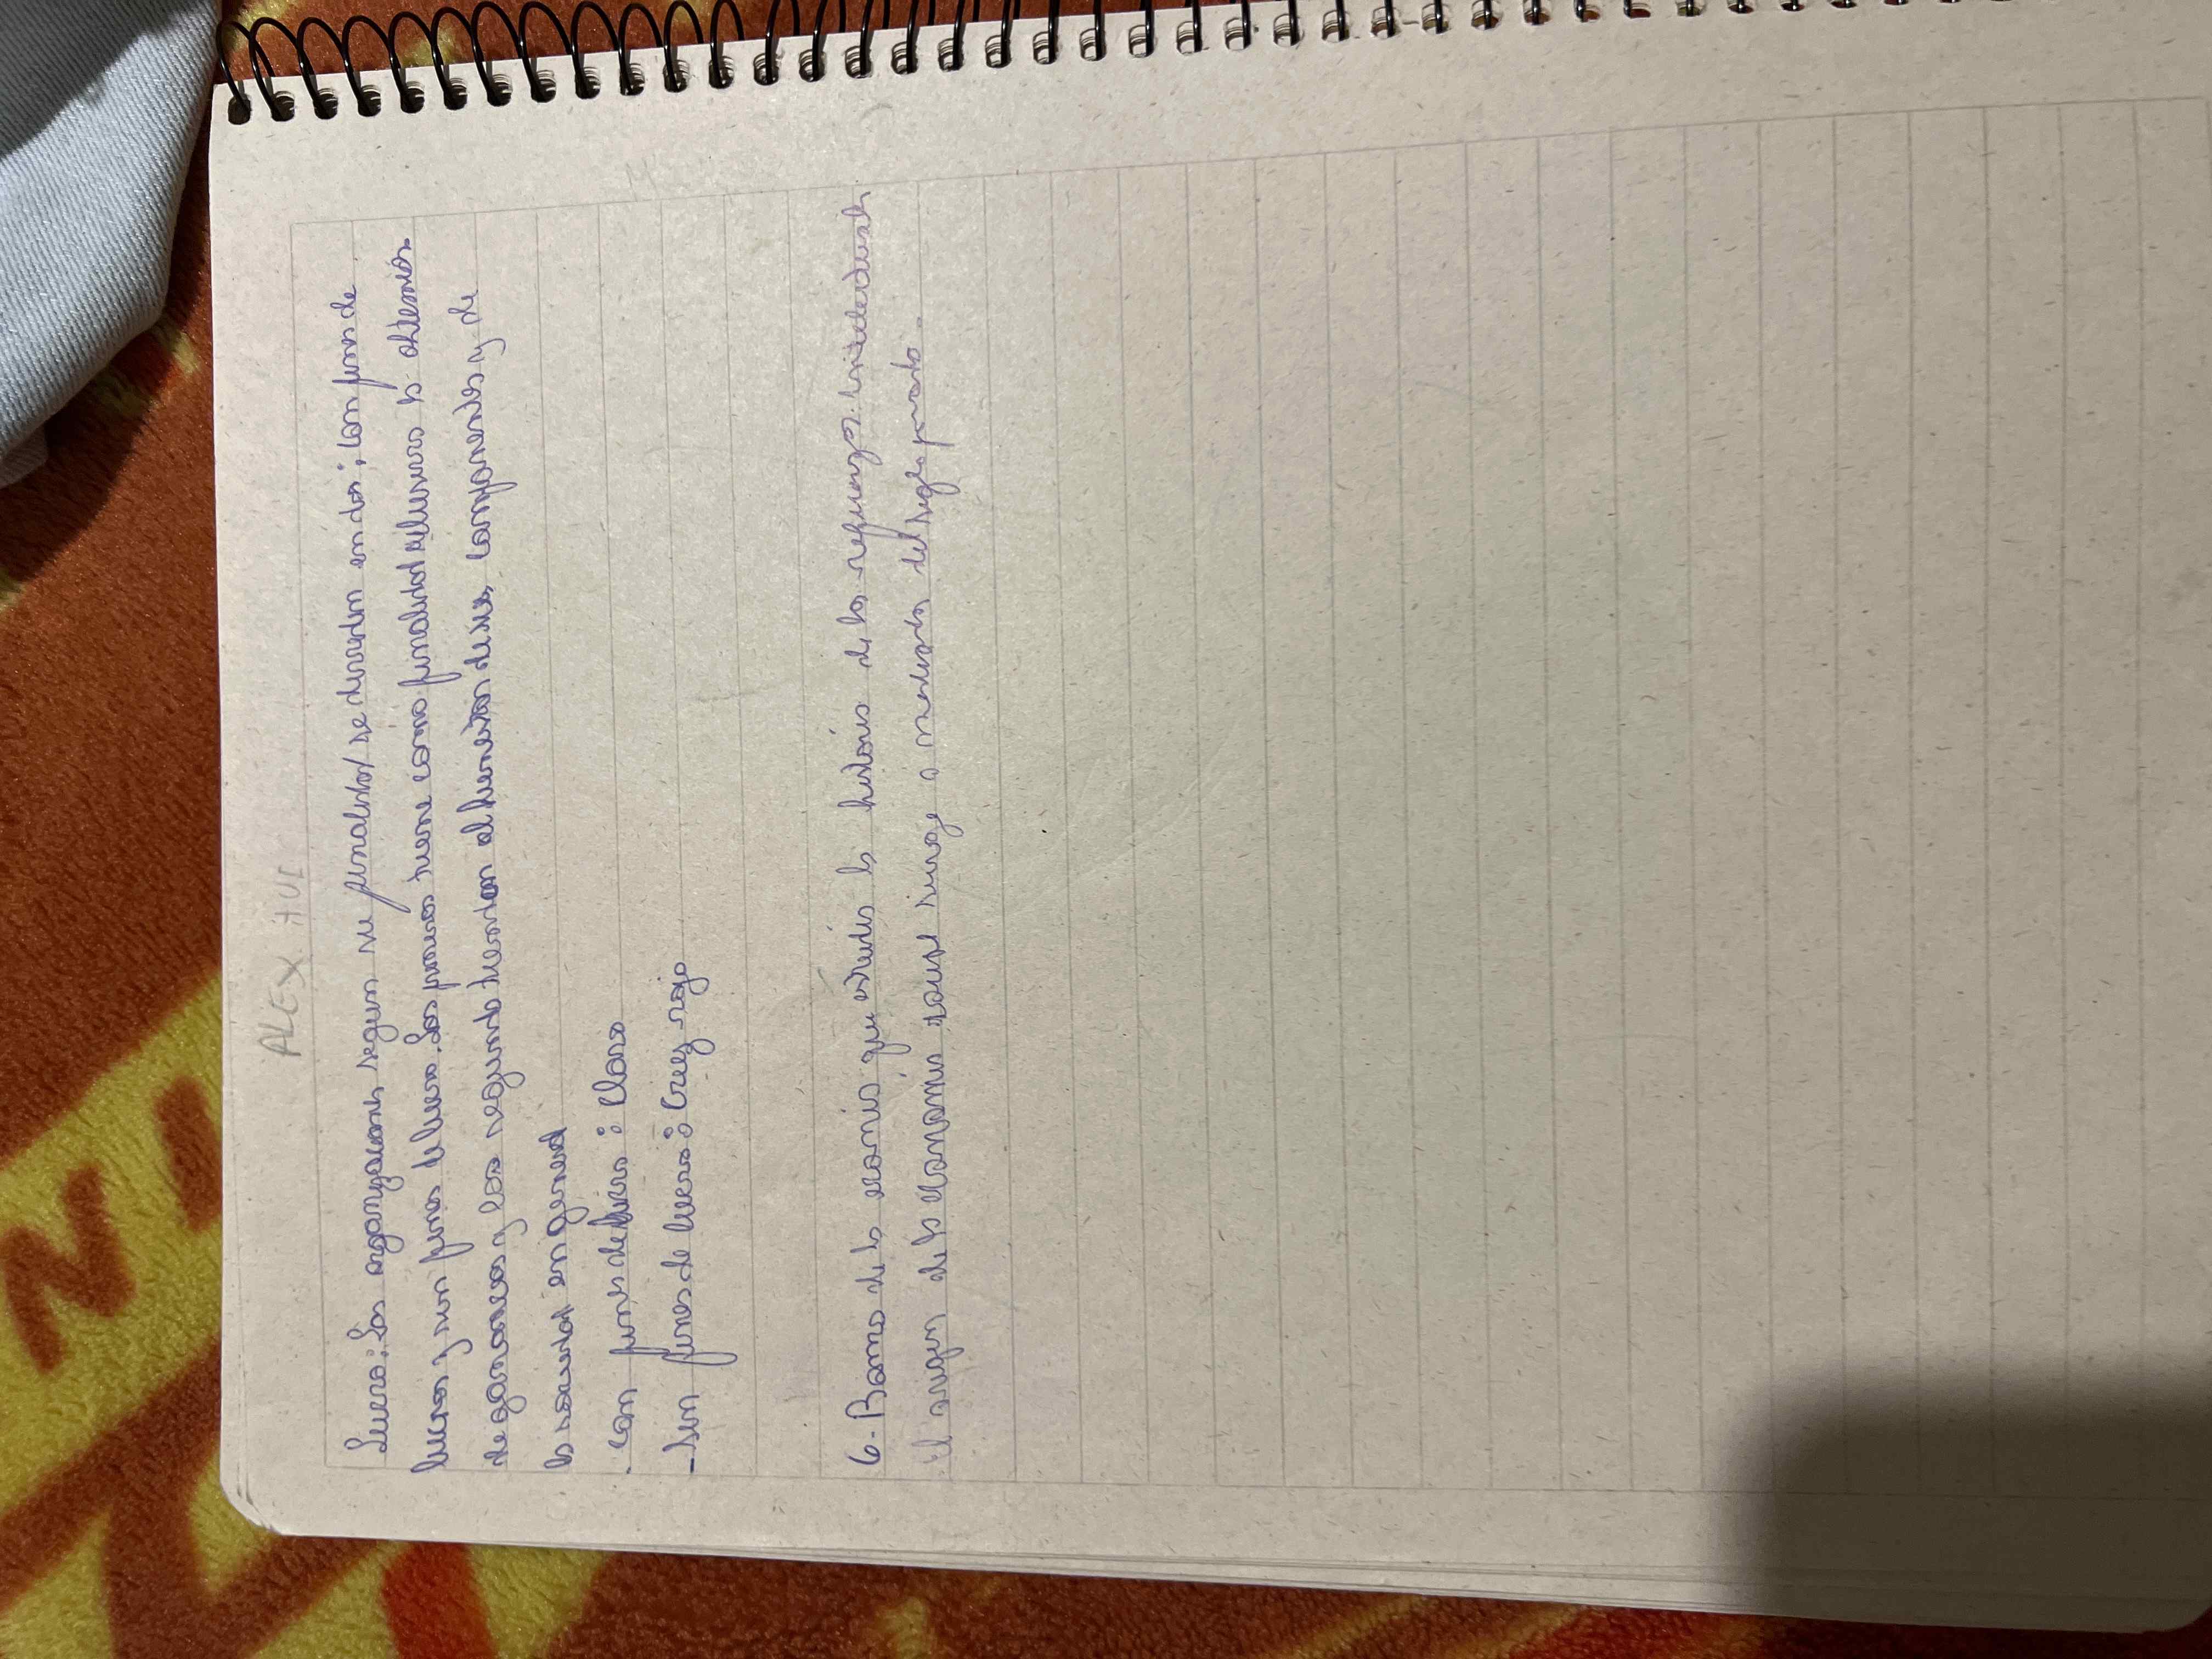 ALEX
Lucro: Las organizaciones, segun su finalidad se dividen en dos; con fines de
lucro y sin fines de lucro. Las primeras tiene como finalidad la obtencion
de ganancias y las segunda bienestar de sus componentes y de
la sociedad en general
. Con fines de lucro : Claro
- Sin fines de lucro : Cruz rojo
6.- Rama de la economia que estudia la historia de los
el origen de la economia surge a mediados del siglo pasado.